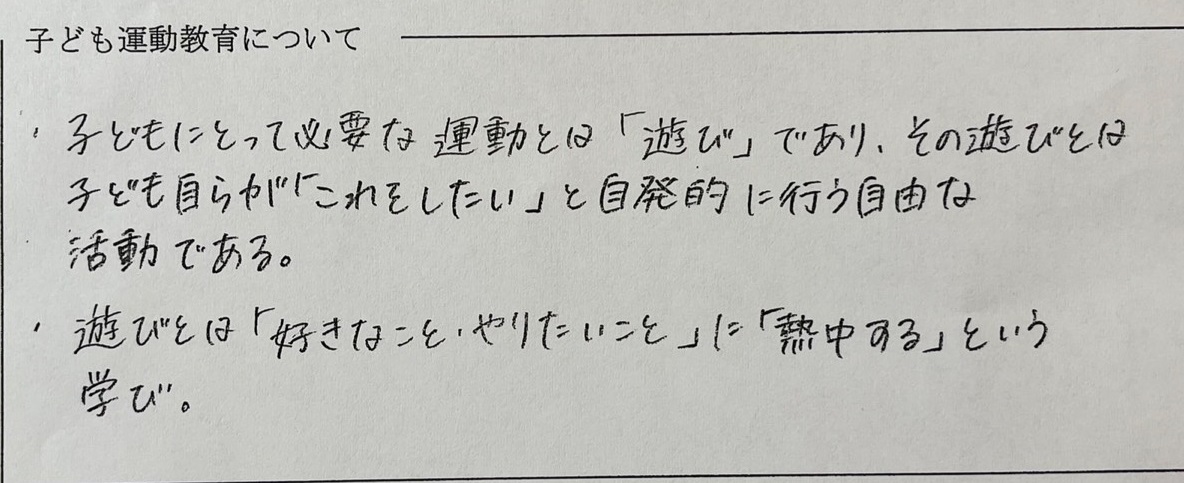 子ども運動教育について
・子どもにとって必要な運動とは「遊び」であり、その遊びとは
子ども自らが「これをしたい」と自発的に行う自由な
活動である。
・遊びとは「好きなこと・やりたいこと」に「熱中する」という
学び。